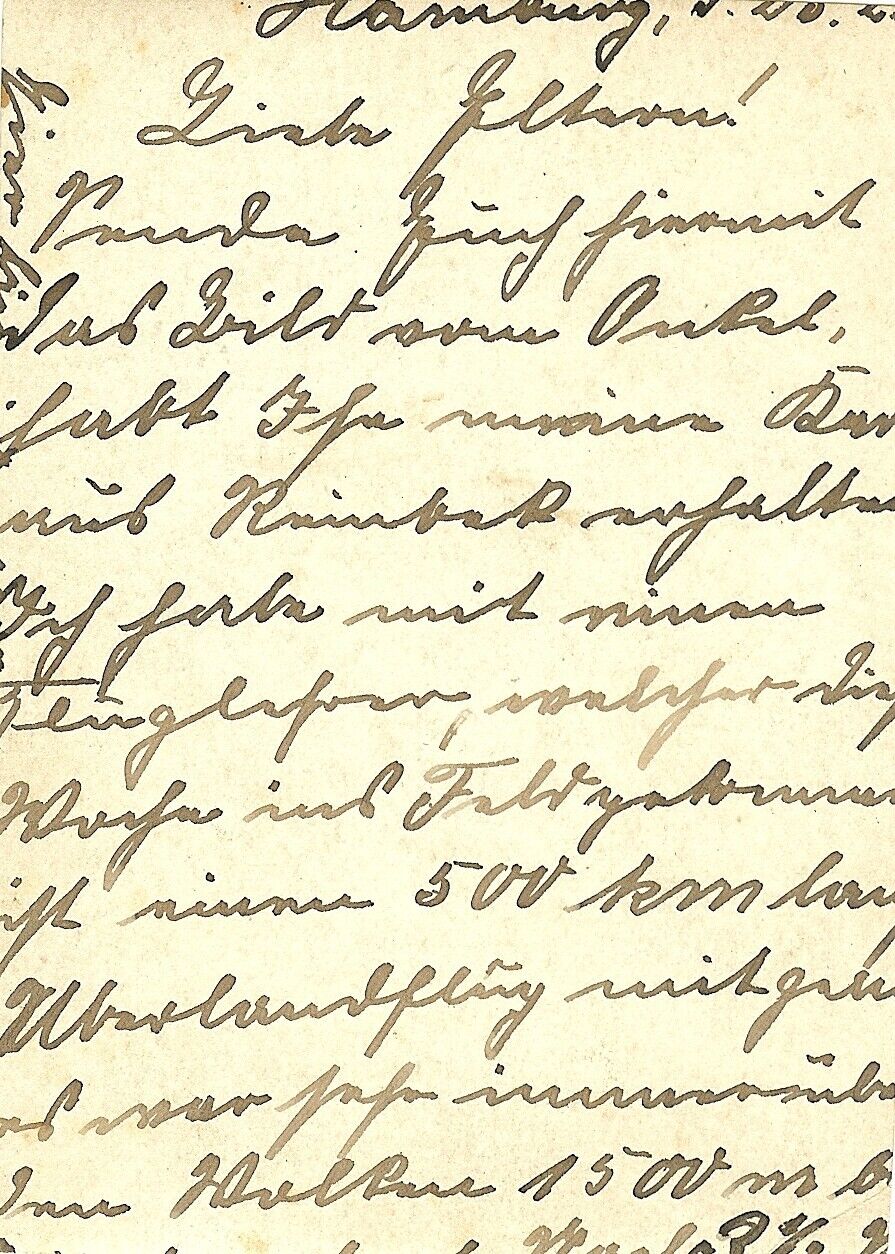 Hamburg, d. 20.
Liebe Eltern!
Sende Euch hiermit
das Bild vom Onkel,
habt Ihr meine Kar
aus Reinbek erhalten
Ich habe mit einem
Fluglehrer, welcher die
Woche ins Feld gekommen
ist einen 500 km lan
Überlandflug mitgem
es war sehr immer übe
den Wolken 1500 m